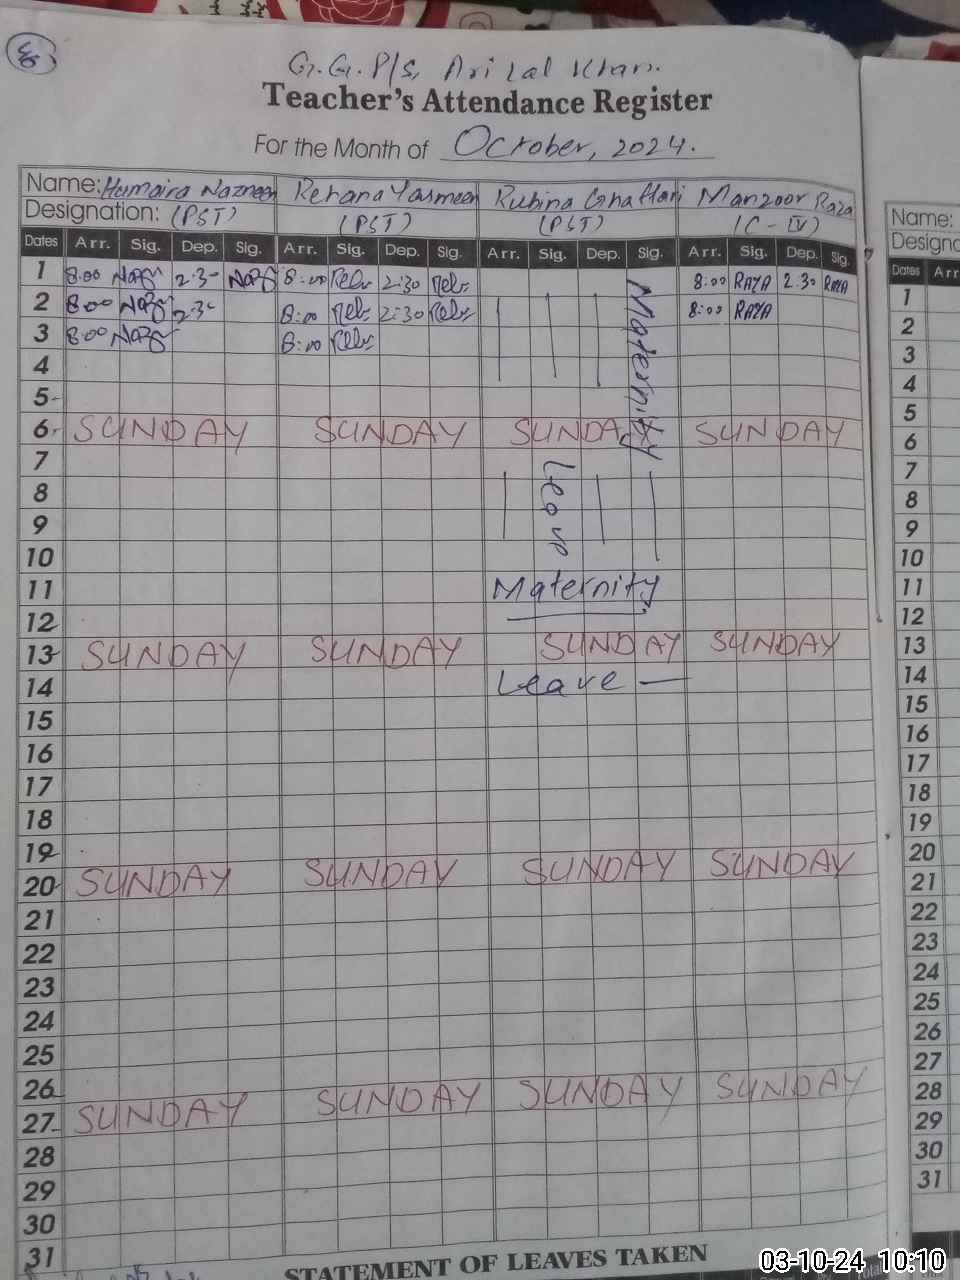 G.G.P/S, Ari Lal Khan.
Teacher's Attendance Register
For the Month of October, 2024.
Name: Humaira Nazneen Rehana Yasmeen Rubina Ghaffari Manzoor Raza
Designation: (PST) (PST) (PST) (C-IV)
Dates Arr. Sig. Dep. Sig. Arr. Sig. Dep. Sig. Arr. Sig. Dep. Sig. Arr. Sig. Dep. Sig.
1 8:00 2:30 8:00 2:30 8:00 RAZA 2:30 RAZA
2 8:00 2:30 8:00 2:30 8:00 RAZA
3 8:00 8:00
Maternity
4
5
6 SUNDAY SUNDAY SUNDAY SUNDAY
7
Leave
8
9
10
11 Maternity
12
13 SUNDAY SUNDAY SUNDAY SUNDAY
14 Leave
15
16
17
18
19
20 SUNDAY SUNDAY SUNDAY SUNDAY
21
22
23
24
25
26
27 SUNDAY SUNDAY SUNDAY SUNDAY
28
29
30
31
STATEMENT OF LEAVES TAKEN
Name:
Designa
Dates Arr
1
2
3
4
5
6
7
8
9
10
11
12
13
14
15
16
17
18
19
20
21
22
23
24
25
26
27
28
29
30
31
03-10-24 10:10